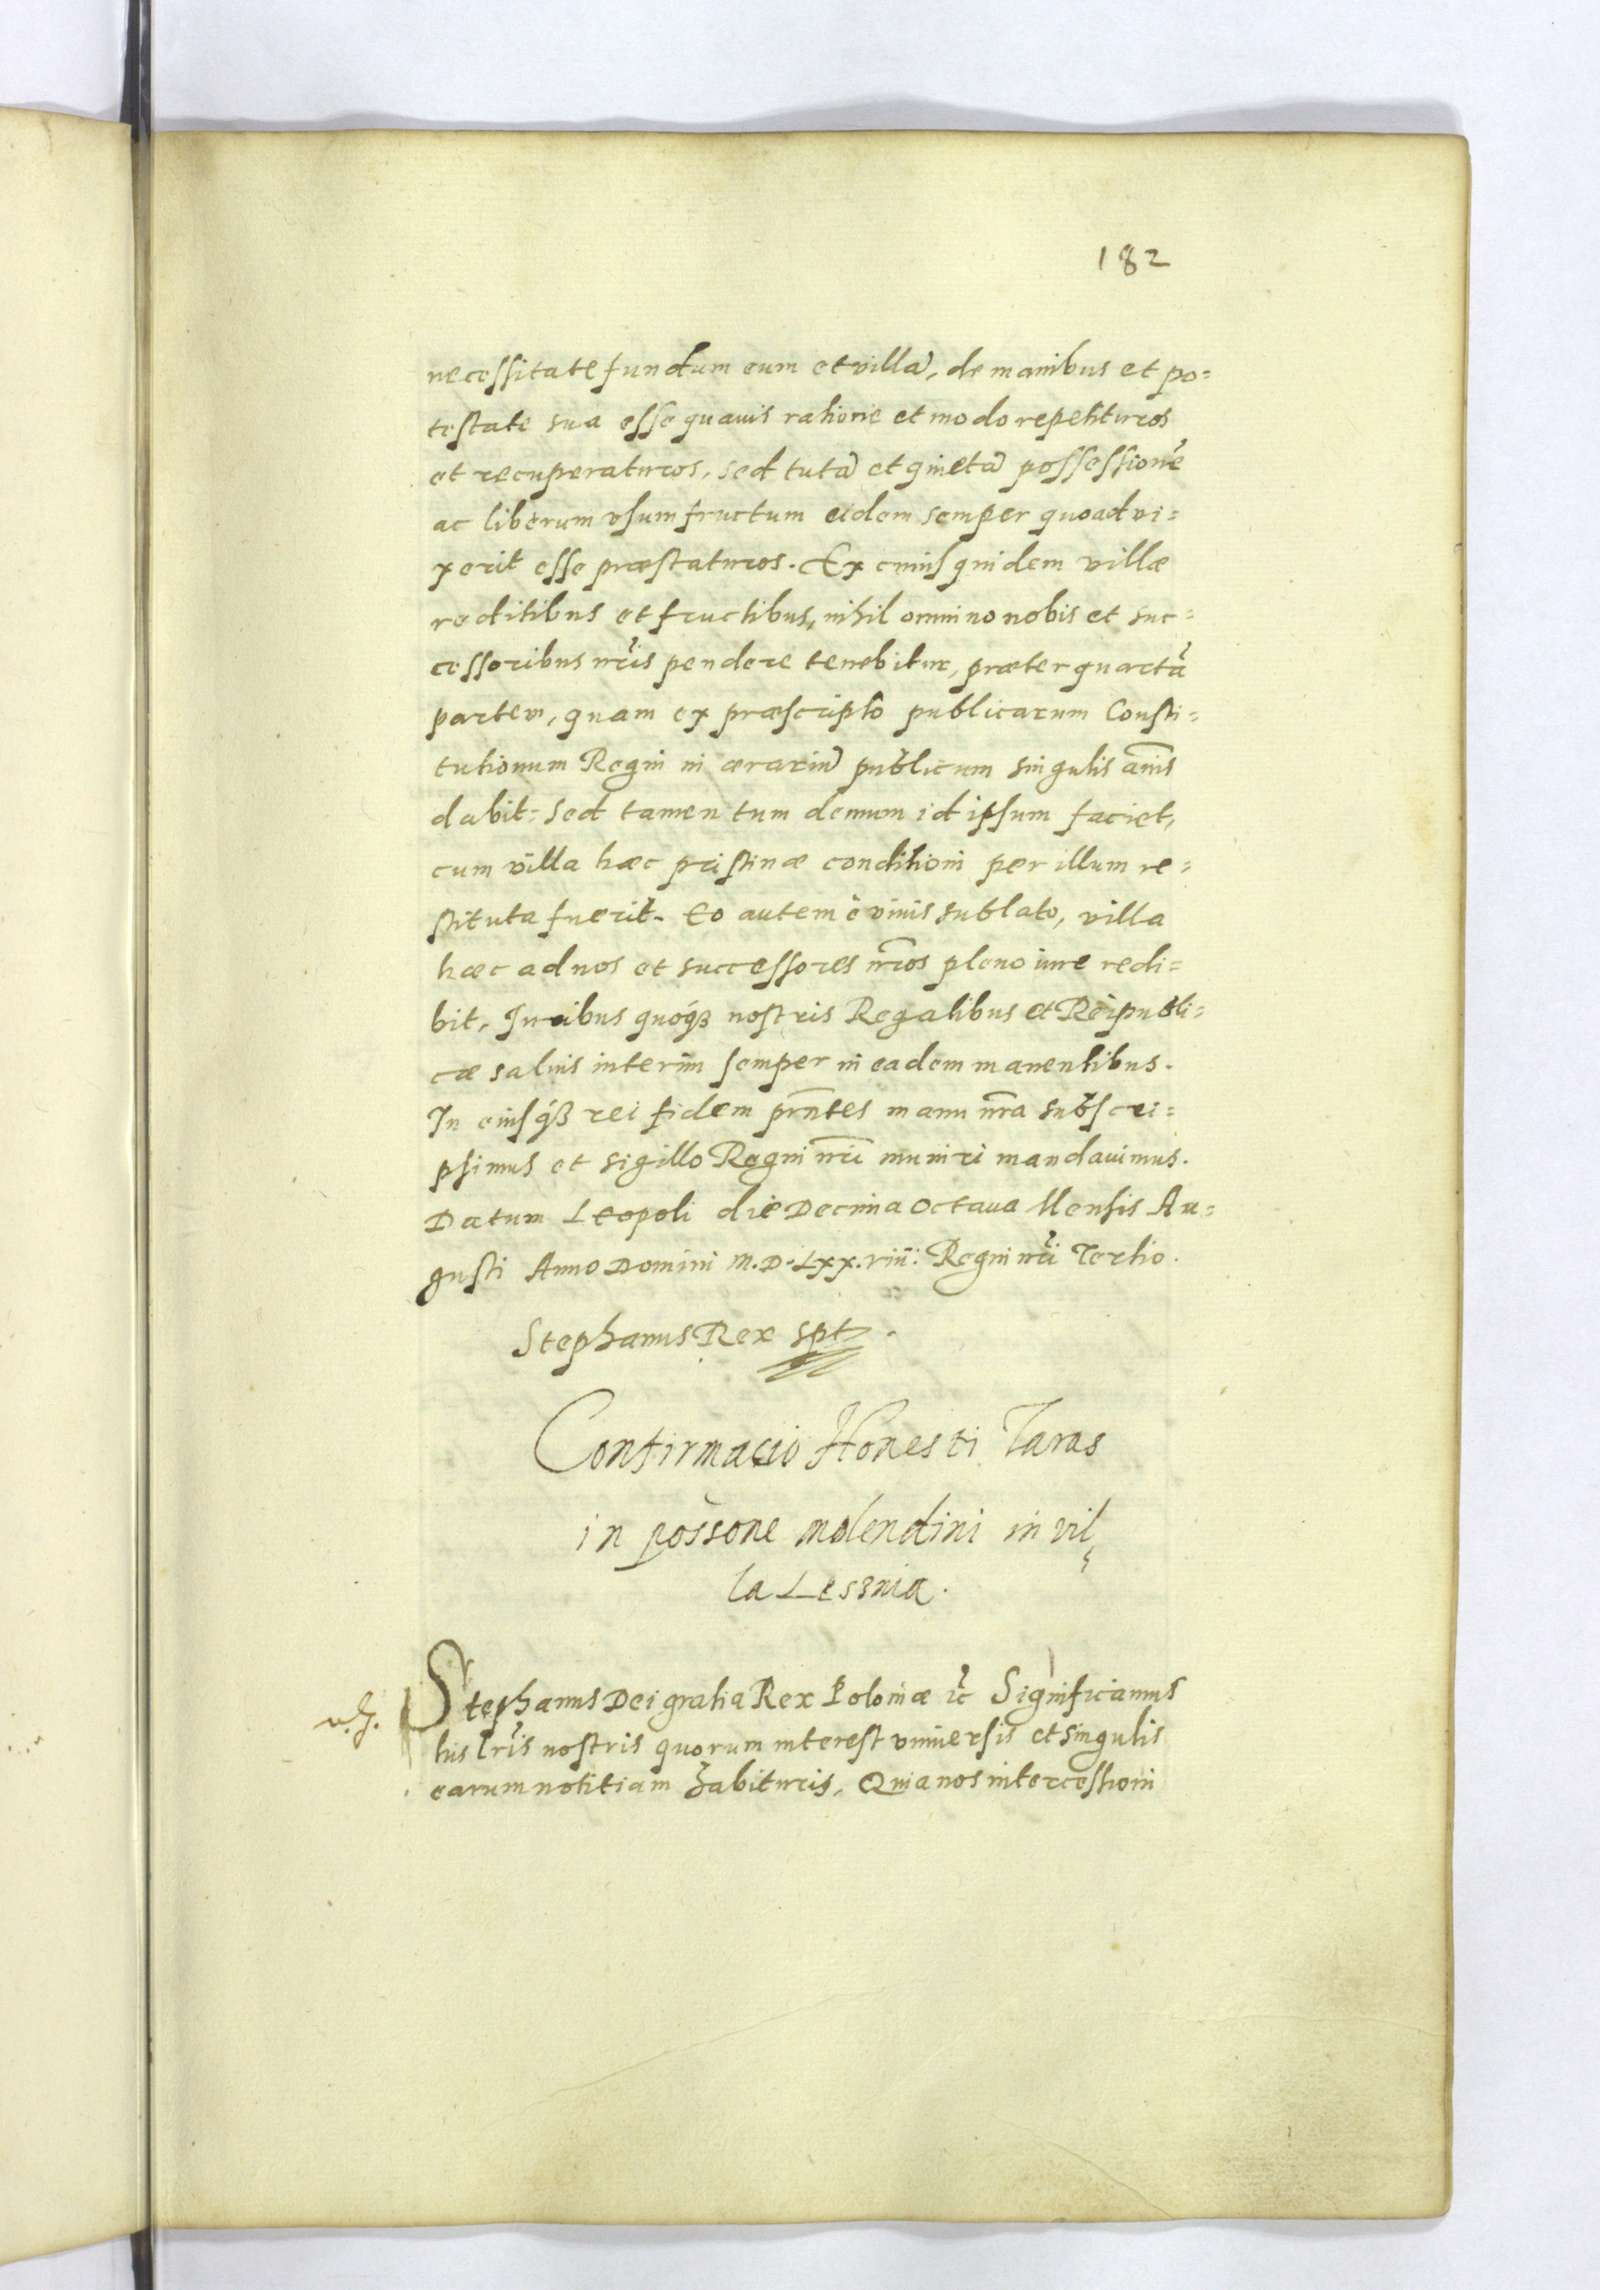 182
necessitate fundum eum et villā, de manibus et po=
testate sua esse quavis ratione et modo repetituros
et recuperaturos, sed tutā et quietā possessionē
ac liberum usumfructum eidem semper quoad vi=
xerit esse præstaturos. Ex cuius quidem villæ
reditibus et fructibus, nihil omnino nobis et suc=
cessoribus nr̄is pendere tenebitur, præter quartā
partem, quam ex præscripto publicarum Consti=
tutionum Regni in ærariū publicum singulis annis
dabit: sed tamen tum demum id ipsum faciet,
cum villa hæc pristinæ conditioni per illum re=
stituta fuerit. Eo autem è vivis sublato, villa
hæc ad nos et successores nr̄os pleno iure redi=
bit, Iuribus quoqȝ nostris Regalibus et Reipubli=
cæ salvis interim semper in eadem manentibus.
In eiusqȝ rei fidem prn̄tes manu nr̄a subscri=
psimus et sigillo Regni nr̄i muniri mandavimus.
Datum Leopoli die Decima Octava Mensis Au=
gusti Anno Domini M.D.Lxx.viii: Regni nr̄i Tertio.
Stephanus Rex spt.
Confirmacio Honesti Taras
in possone molendini in vil
la Lessnia.
v.J.
Stephanus Dei gratia Rex Poloniæ ic̄ Significamus
his lr̄is nostris quorum interest universis et singulis
earum notitiam habituris, Quia nos intercessioni